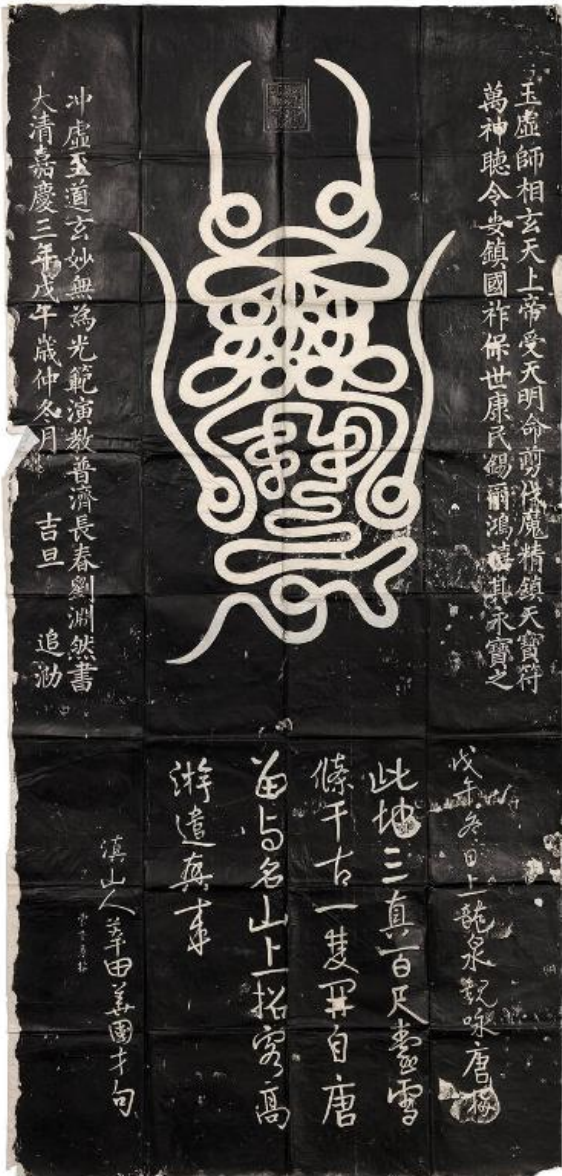 玉虛師相玄天上帝受天明命剪伐魔精鎮天寶符
萬神聽令安鎮國祚保世康民錫爾鴻禧其永寶之
冲虛至道玄妙無為光範演教普濟長春劉淵然書
大清嘉慶三年戊午歲仲冬月 吉旦 追泐
戊午冬日上龍泉觀咏唐梅
此地三真一百尺
條千古一雙開自唐
留与名山上招客高
游遣興來
滇山人莘田